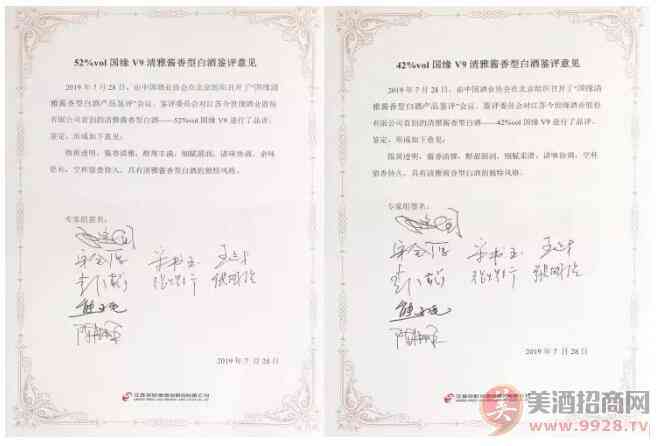 52%vol 国缘 V9 清雅酱香型白酒鉴评意见
2019 年 7 月 28 日，由中国酒业协会在北京组织召开了“国缘
清雅酱香型白酒产品鉴评”会议。鉴评委员会对江苏今世缘酒业股份
有限公司首创的清雅酱香型白酒——52%vol 国缘 V9 进行了品评、
鉴定，形成如下意见：
微黄透明，酱香清雅，醇厚丰满，细腻圆润，诸味协调，余味
悠长，空杯留香持久，具有清雅酱香型白酒的独特风格。
专家组签名：
2019 年 7 月 28 日
江苏今世缘酒业股份有限公司
42%vol 国缘 V9 清雅酱香型白酒鉴评意见
2019 年 7 月 28 日，由中国酒业协会在北京组织召开了“国缘清
雅酱香型白酒产品鉴评”会议。鉴评委员会对江苏今世缘酒业股份
有限公司首创的清雅酱香型白酒——42%vol 国缘 V9 进行了品评、
鉴定，形成如下意见：
微黄透明，酱香清雅，醇甜圆润，细腻柔滑，诸味协调，空杯
留香持久，具有清雅酱香型白酒的独特风格。
专家组签名：
2019 年 7 月 28 日
江苏今世缘酒业股份有限公司
美酒招商网
www.9928.TV